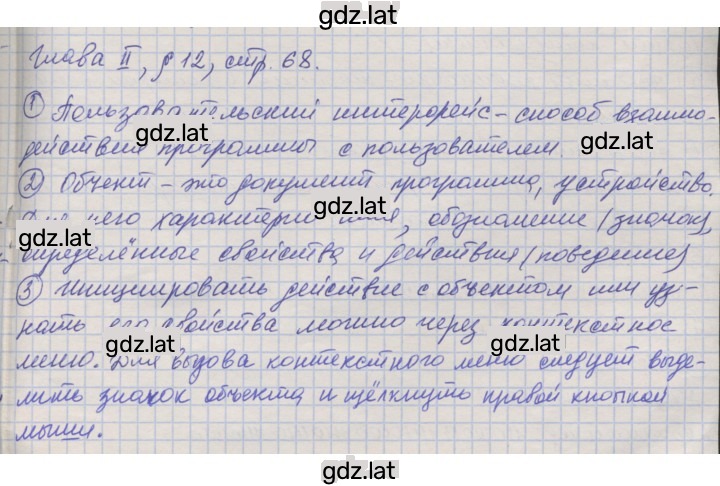 gdz.lat
Глава II, § 12, стр. 68.
① Пользовательский интерфейс - способ взаимо-
gdz.lat gdz.lat
действия программы с пользователем.
② Объект - это документ программа, устройство.
gdz.lat
него характерно имя, обозначение (значок),
gdz.lat gdz.lat
определённые свойства и действия (поведение)
③ Инициировать действие с объектом или уз-
нать его свойства можно через контекстное
gdz.lat gdz.lat
меню. Для вызова контекстного меню следует выде-
лить значок объекта и щёлкнуть правой кнопкой
мыши.
gdz.lat